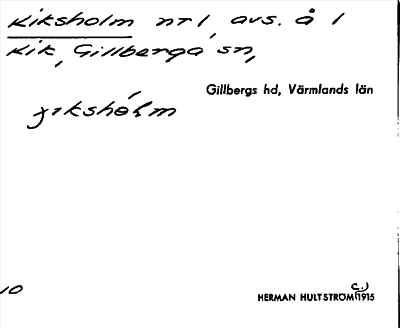 Kiksholm nr 1, avs. å 1
Kik, Gillberga sn,
Gillbergs hd, Värmlands län
10
HERMAN HULTSTRÖM (c.) 1915